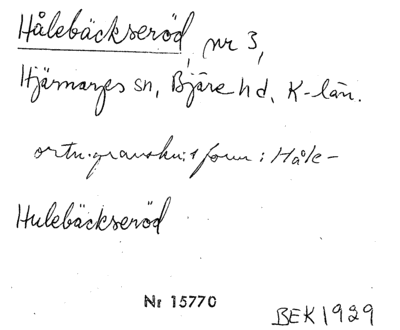 Hålebäckseröd, nr 3,
Hjärnarps sn, Bjäre hd, K-län.
ortn.granskn:s form: Håle-
Hulebäckseröd
Nr 15770
BEK 1929